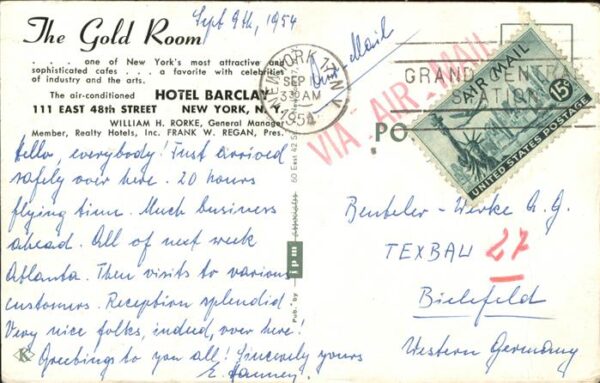 Sept 9th, 1954
The Gold Room
. . . one of New York's most attractive and
sophisticated cafes . . . a favorite with celebrities
of industry and the arts.
The air-conditioned HOTEL BARCLAY
111 EAST 48th STREET NEW YORK, N. Y.
WILLIAM H. RORKE, General Manager
Member, Realty Hotels, Inc. FRANK W. REGAN, Pres.
Hello, everybody! Just arrived
safely over here. 20 hours
flying time. Much business
ahead. All of next week
Atlanta. Then visits to various
customers. Reception splendid
Very nice folks, indeed, over here!
Greetings to you all! Sincerely yours
E.
K
Pub. by
ipm
60 East 42 St
Mail
NEW YORK 17, N.Y.
SEP
AM
1954
GRAND CENTRAL
STATION
VIA - AIR - MAIL
PO
AIR MAIL
15¢
UNITED STATES POSTAGE
Benteler-Werke A.G.
TEXBAU 27
Bielefeld
Western Germany